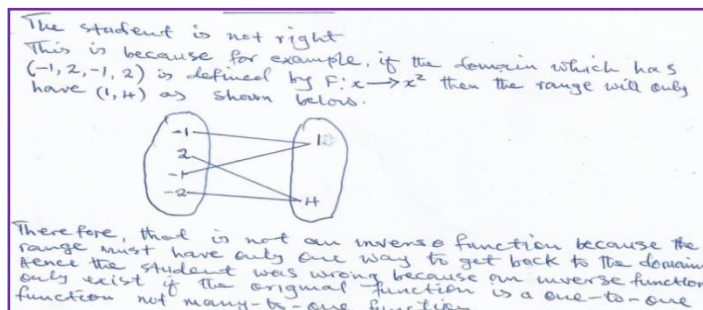 The student is not right
This is because for example, if the domain which has
(-1, 2, -1, 2) is defined by F: x → x² then the range will only
have (1, 4) as shown below.
-1
2
-1
-2
1
4
Therefore, that is not an inverse function because the
range must have only one way to get back to the domain
Hence the student was wrong because an inverse function
only exist if the original function is a one-to-one
function not many-to-one function